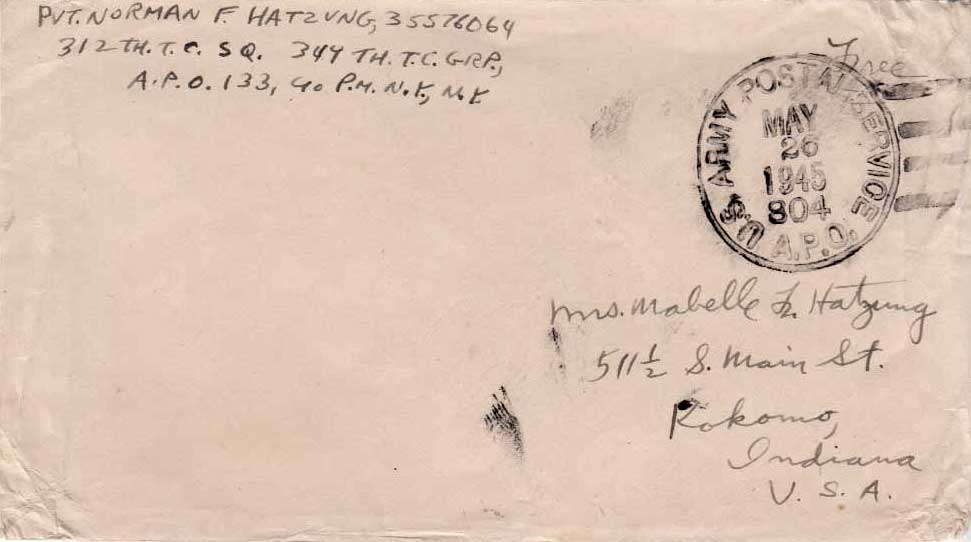 PVT. NORMAN F. HATZUNG, 35576064
312 TH. T.C. SQ. 349 TH. T.C. GRP.,
A.P.O. 133, % P.M. N.Y., N.Y.
Free
U.S. ARMY POSTAL SERVICE
MAY
26
1945
804
A.P.O.
Mrs. Mabelle Hatzung
511½ S. Main St.
Kokomo,
Indiana
U. S. A.